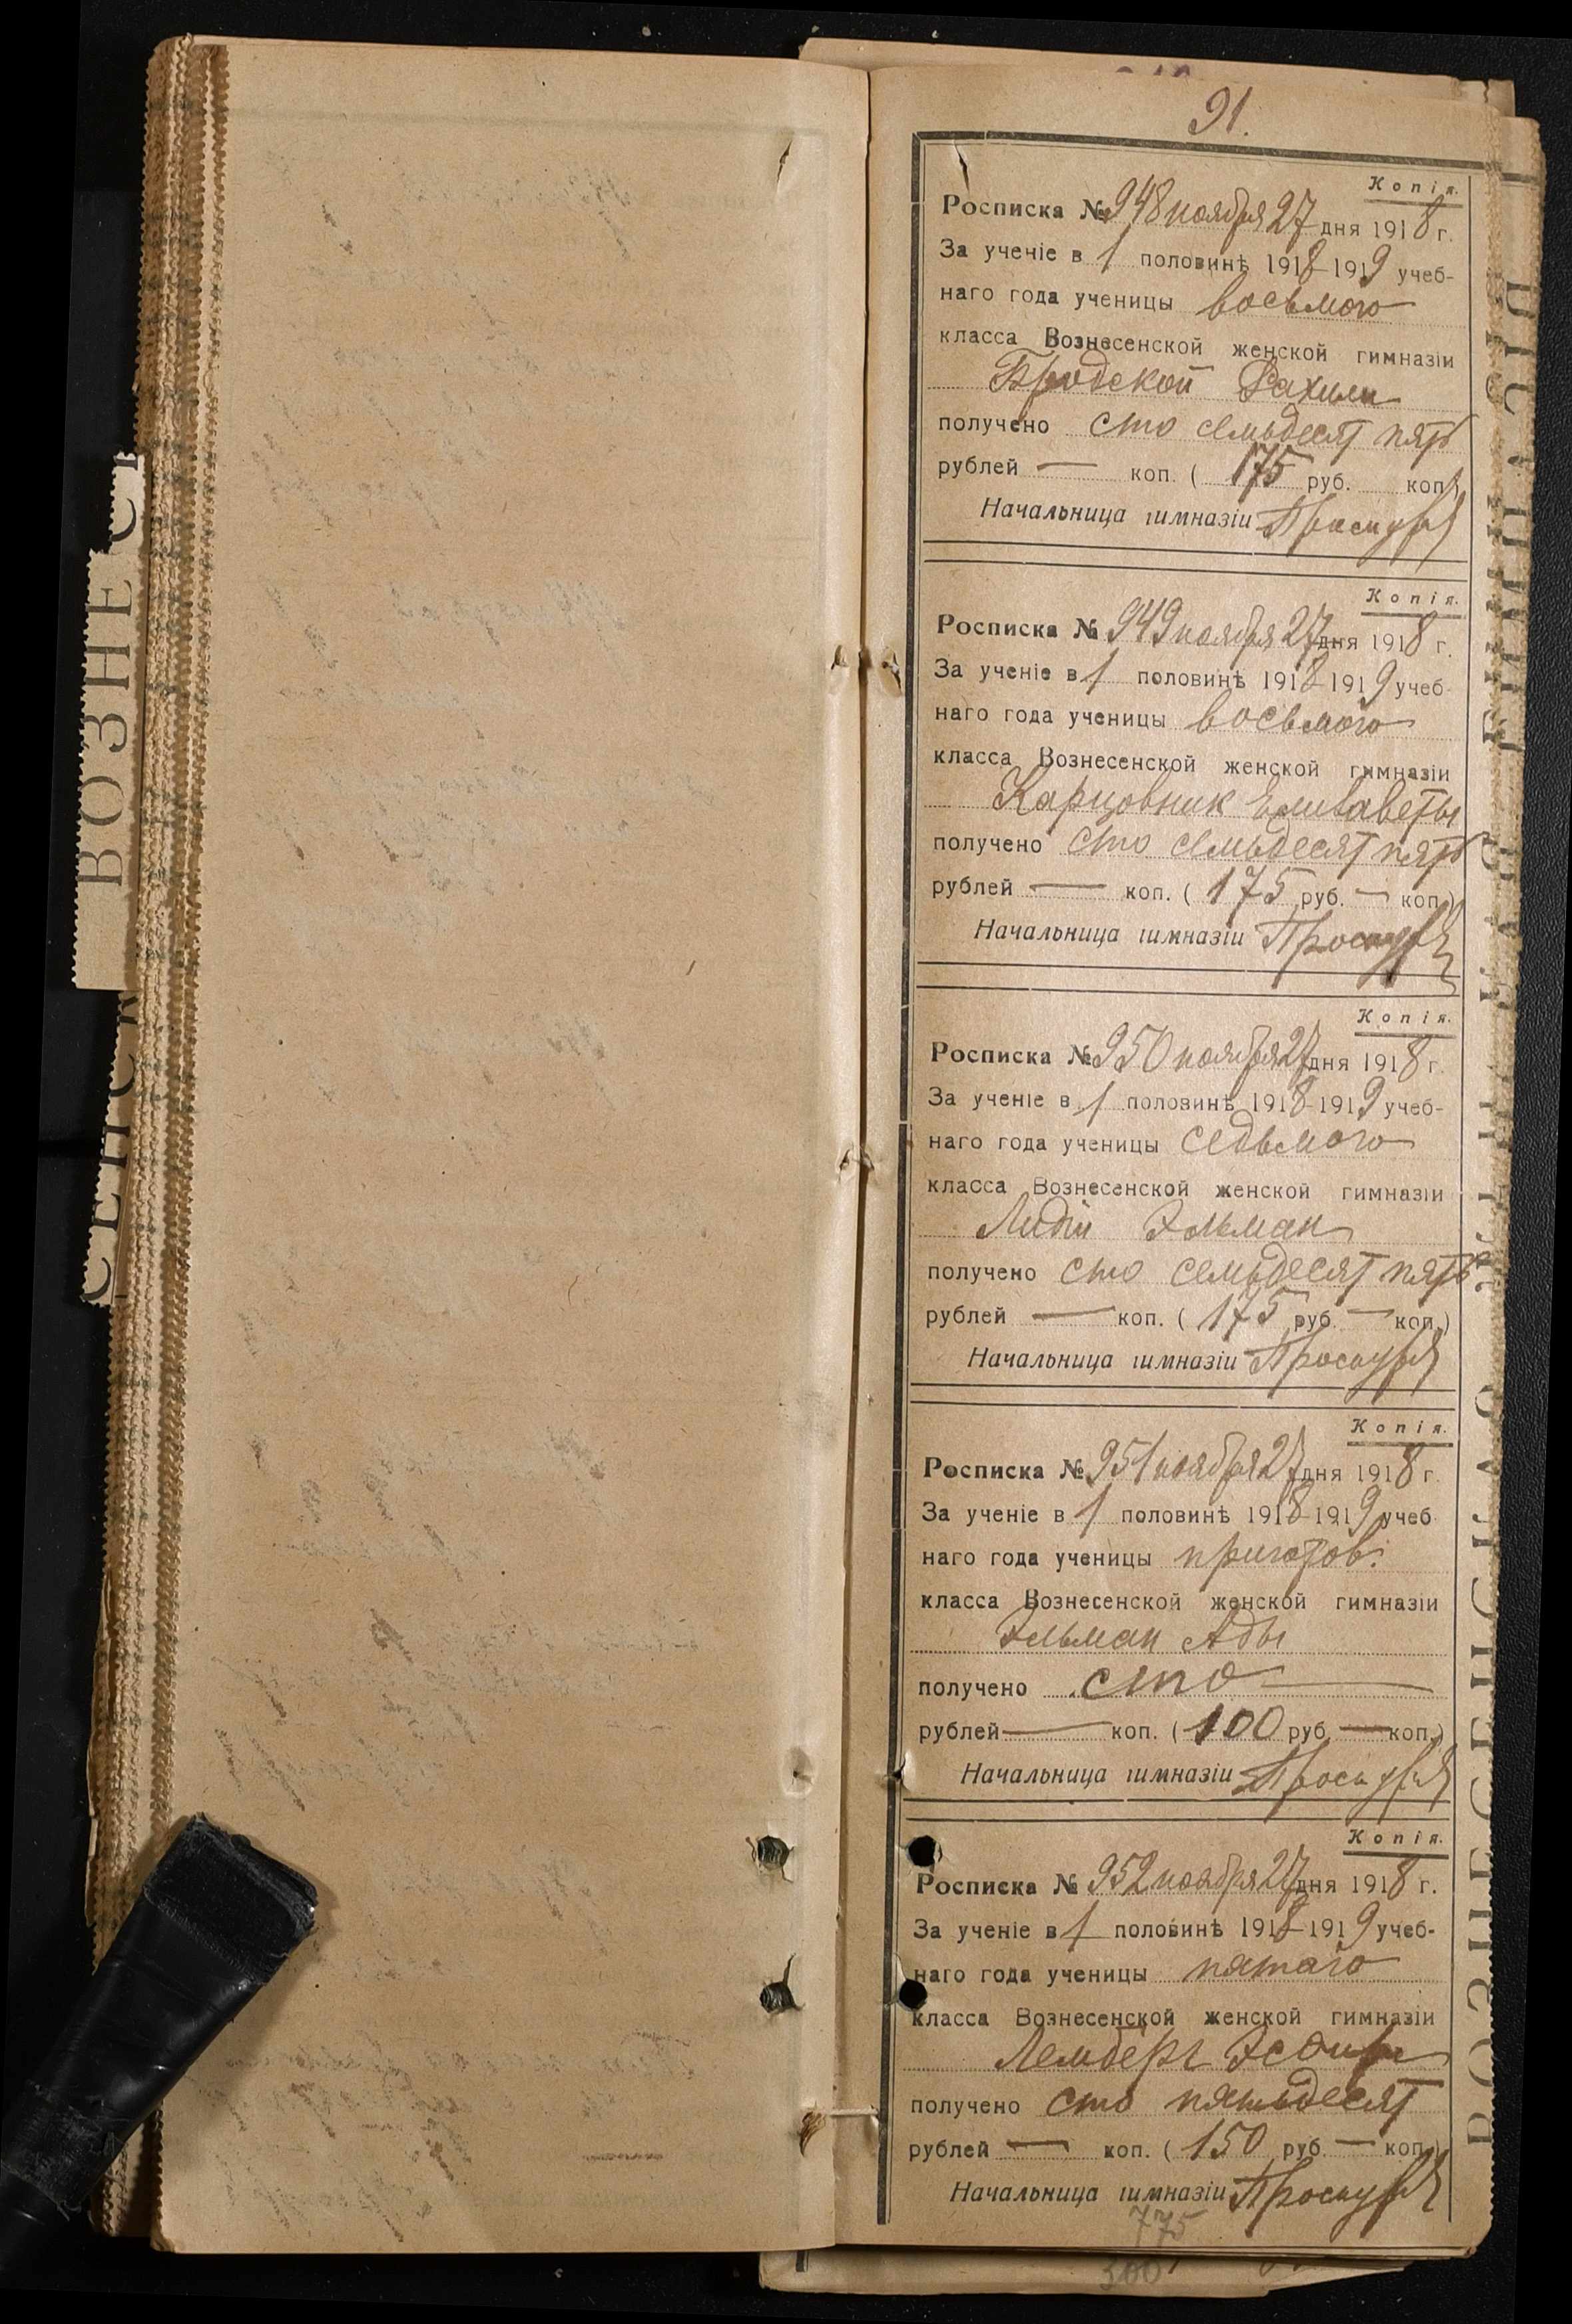 ВОЗНЕС
СЕНСК
91.
Копія.
Росписка № 948 ноября 27 дня 1918 г.
За ученіе в 1 половинѣ 1918-1919 учеб-
наго года ученицы восьмого
класса Вознесенской женской гимназіи
Бродской Рахили
получено сто семьдесят пять
рублей — коп. ( 175 руб. коп.)
Начальница гимназіи
Копія.
Росписка № 949 ноября 27 дня 1918 г.
За ученіе в 1 половинѣ 1918-1919 учеб-
наго года ученицы восьмого
класса Вознесенской женской гимназіи
Карцовник Елизаветы
получено сто семьдесят пять
рублей — коп. ( 175 руб. — коп.)
Начальница гимназіи
Копія.
Росписка № 950 ноября 27 дня 1918 г.
За ученіе в 1 половинѣ 1918-1919 учеб-
наго года ученицы седьмого
класса Вознесенской женской гимназіи
Лидіи Эльман
получено сто семьдесят пять
рублей — коп. ( 175 руб. — коп.)
Начальница гимназіи
Копія.
Росписка № 951 ноября 27 дня 1918 г.
За ученіе в 1 половинѣ 1918-1919 учеб
наго года ученицы приготов.
класса Вознесенской женской гимназіи
Эльман Ады
получено сто —
рублей — коп. ( 100 руб — коп.)
Начальница гимназіи
Копія.
Росписка № 952 ноября 27 дня 1918 г.
За ученіе в 1 половинѣ 1918-1919 учеб-
наго года ученицы пятаго
класса Вознесенской женской гимназіи
Лемберг
получено сто пятьдесят
рублей — коп. ( 150 руб. — коп.)
Начальница гимназіи
775
300